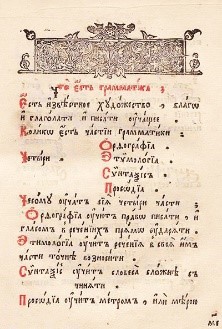 Что̀ є҆́сть грамма́тїка ;
Є҆́сть и҆звѣ́стное хꙋдо́жество благѡ
и҆ глаго́лати и҆ писа́ти ᲂу҆ча́щее .
Коли́кѡ є҆́сть часті́й грамма́тїки
Четы́ри
Ѻ҆рѳогра́фїа
Є҆тѷмоло́гїа
Сѷ́нтаѯїсъ
Просѡді́а
Чесомꙋ̀ ᲂу҆ча́тъ сїѧ̑ четы́ри ча́сти
Ѻ҆рѳогра́фїа ᲂу҆чи́тъ пра́вѡ писа́ти , и҆
гла́сомъ въ рече́нїихъ прѧ́мѡ ᲂу҆дарѧ́ти .
Є҆тѷмоло́гїа ᲂу҆чи́тъ рече́нїѧ въ своѧ̑ и҆́мъ
ча́сти то́чнѣ возноси́ти
Сѷ́нтаѯїсъ ᲂу҆чи́тъ словеса̀ сло́жнѣ съ
чинѧ́ти
Просѡді́а ᲂу҆чи́тъ ме́тромъ , и҆лѝ мѣ́рою